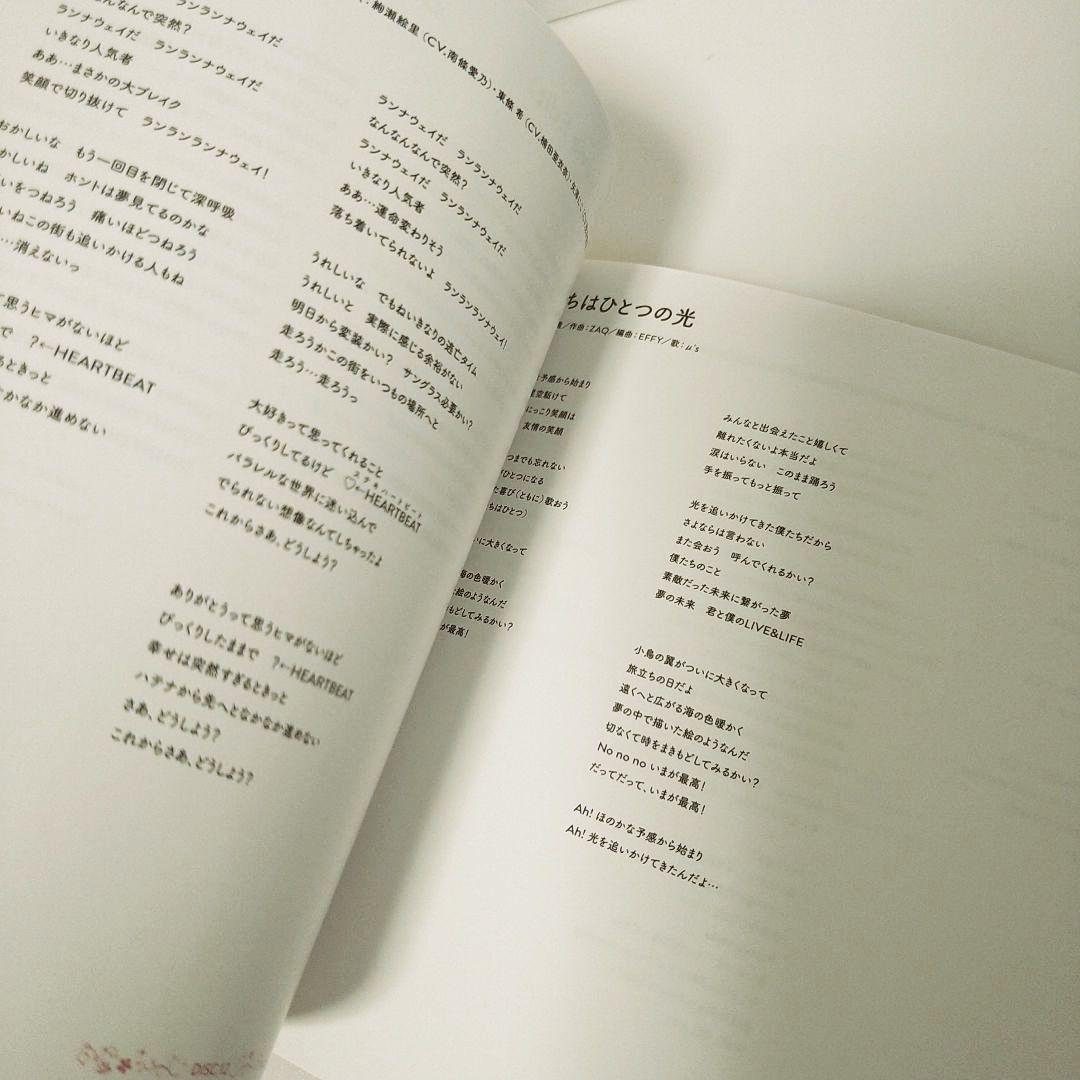 絢瀬絵里(CV.南條愛乃)・東條 希(CV.楠田亜衣奈)・
ランランナウェイだ
なんなんで突然?
ランナウェイだ ランランナウェイだ
いきなり人気者
ああ…まさかの大ブレイク
笑顔で切り抜けて ランランランナウェイ!
おかしいな もう一回目を閉じて深呼吸
かしいね ホントは夢見てるのかな
いをつねろう 痛いほどつねろう
いねこの街も追いかける人もね
…消えないっ
て思うヒマがないほど
で ?←HEARTBEAT
るときっと
なかなか進めない
ランナウェイだ ランランナウェイだ
なんなんなんで突然?
ランナウェイだ ランランナウェイだ
いきなり人気者
ああ…運命変わりそう
落ち着いてられないよ ランランランナウェイ!
うれしいな でもねいきなりの逃亡タイム
うれしいと 実際に感じる余裕がない
明日から変装かい? サングラス必要かい?
走ろうかこの街をいつもの場所へと
走ろう…走ろうっ
大好きって思ってくれること
びっくりしてるけど ♡←HEARTBEAT
パラレルな世界に迷い込んで
でられない想像なんてしちゃったよ
これからさあ、どうしよう?
ありがとうって思うヒマがないほど
びっくりしたままで ?←HEARTBEAT
幸せは突然すぎるときっと
ハテナから先へとなかなか進めない
さあ、どうしよう?
これからさあ、どうしよう?
DISC12
ちはひとつの光
/作曲:ZAQ/編曲:EFFY/歌:μ's
予感から始まり
星空駆けて
にっこり笑顔は
友情の笑顔
つまでも忘れない
ひとつになる
た喜び(ともに)歌おう
ちはひとつ)
いに大きくなって
海の色暖かく
絵のようなんだ
もどしてみるかい?
が最高!
みんなと出会えたこと嬉しくて
離れたくないよ本当だよ
涙はいらない このまま踊ろう
手を振ってもっと振って
光を追いかけてきた僕たちだから
さよならは言わない
また会おう 呼んでくれるかい?
僕たちのこと
素敵だった未来に繋がった夢
夢の未来 君と僕のLIVE&LIFE
小鳥の翼がついに大きくなって
旅立ちの日だよ
遠くへと広がる海の色暖かく
夢の中で描いた絵のようなんだ
切なくて時をまきもどしてみるかい?
No no no いまが最高!
だってだって、いまが最高!
Ah! ほのかな予感から始まり
Ah! 光を追いかけてきたんだよ…